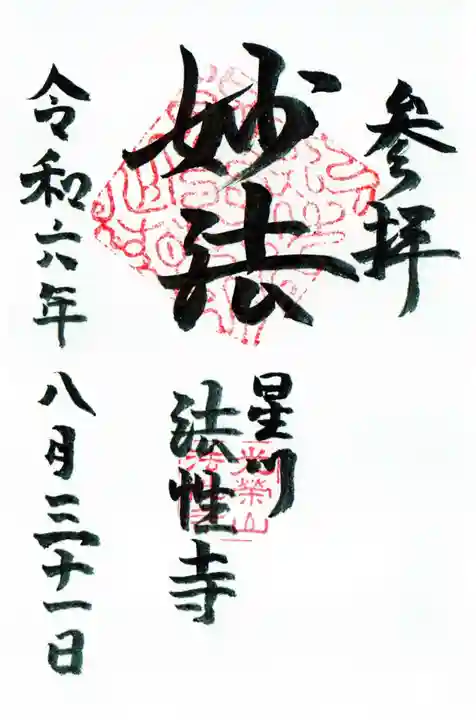 参拝
妙法
星川
法性寺
令和六年
八月三十一日
光榮山
法性寺